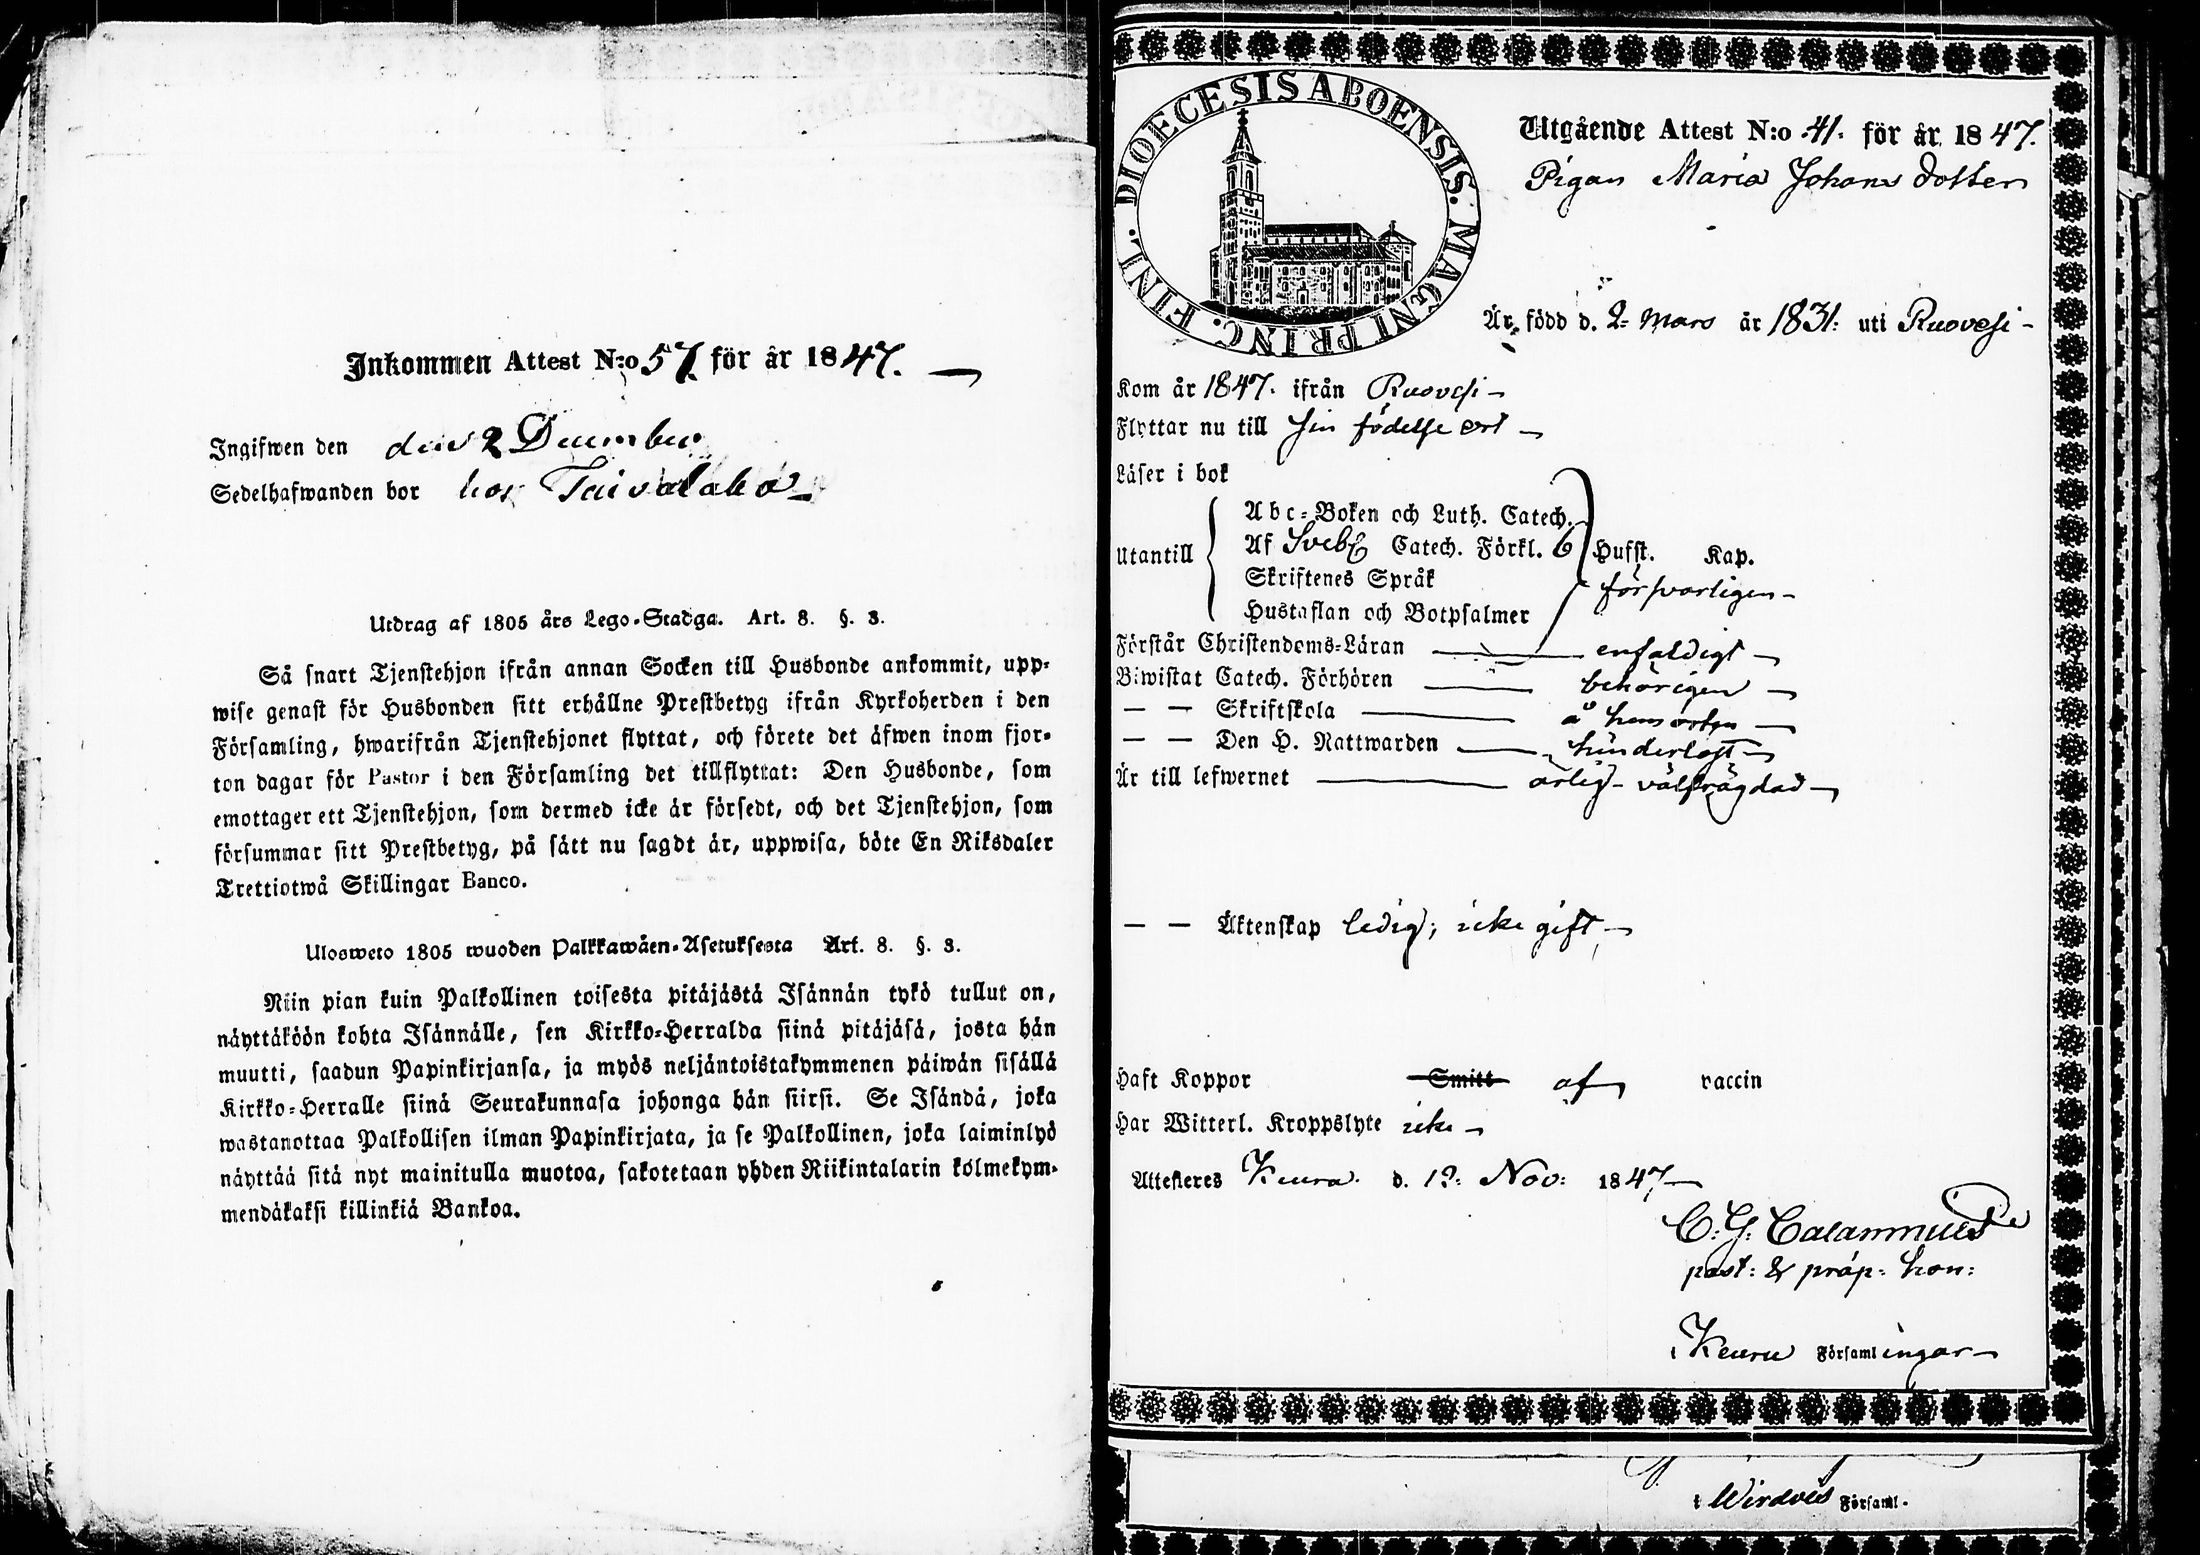 Inkommen Attest N:o 57. för år 1847.
Ingifwen den den 2 December
Sedelhafwanden bor hos Taivalaho
Utdrag af 1805 års Lego-Stadga. Art. 8. §. 3.
Så snart Tjenstehjon ifrån annan Socken till Husbonde ankommit, upp-
wise genast för Husbonden sitt erhållne Prestbetyg ifrån Kyrkoherden i den
Församling, hwarifrån Tjenstehjonet flyttat, och förete det äfwen inom fjor-
ton dagar för Pastor i den Församling det tillflyttat: Den Husbonde, som
emottager ett Tjenstehjon, som dermed icke är försedt, och det Tjenstehjon, som
försummar sitt Prestbetyg, på sätt nu sagdt är, uppwisa, böte En Riksdaler
Trettiotwå Skillingar Banco.
Ulosweto 1805 wuoden Palkkawäen-Asetuksesta Art. 8. §. 3.
Niin pian kuin Palkollinen toisesta pitäjästä Isännän tykö tullut on,
näyttäköön kohta Isännälle, sen Kirkko-Herralda siinä pitäjäsä, josta hän
muutti, saadun Papinkirjansa, ja myös neljäntoistakymmenen päiwän sisällä
Kirkko-Herralle siinä Seurakunnasa johonga hän siirsi. Se Isändä, joka
wastanottaa Palkollisen ilman Papinkirjata, ja se Palkollinen, joka laiminlyö
näyttää sitä nyt mainitulla muotoa, sakotetaan yhden Riikintalarin kolmekym-
mendäkaksi killinkiä Bankoa.
DIOECESIS ABOENSIS. MAGNI PRINC. FINL.
Utgående Attest N:o 41. för år 1847.
Pigan Maria Johans dotter
Är född d. 2: Mars år 1831: uti Ruovesi
Kom år 1847. ifrån Ruovesi
Flyttar nu till sin födelse ort
Läser i bok
Utantill
Abc-Boken och Luth. Catech.
Af Sveb. Catech. Förkl. 6 Hufst. Kap.
Skriftenes Språk försvarligen
Hustaflan och Botpsalmer
Förstår Christendoms-Läran enfaldigt
Biwistat Catech. Förhören behörigen
— — Skriftskola å hemorten
— — Den H. Nattwarden hinderlöst
Är till lefwernet ärlig välfrägdad
— — Äktenskap ledig; icke gift
Haft Koppor Smitt af vaccin
Har Witterl. Kroppslyte icke
Attesteres Keuru d. Nov: 1847
C. G. Calamnius
past: & präp: hon:
i Keuru Församlingar
i Wirdois Församl.